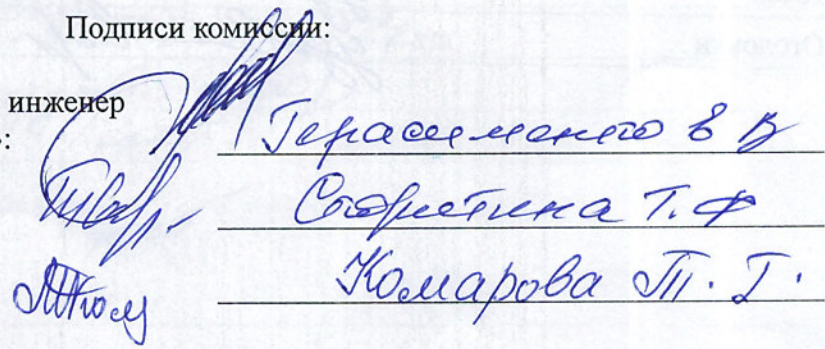 Подписи комиссии:
инженер
Герасименко В В
Т.Ф
Комарова Т. Г.